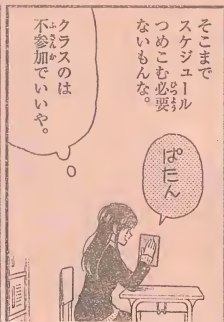 そこまで
スケジュール
つめこむ必要
ないもんな。
ぱたん
クラスのは
不参加でいいや。